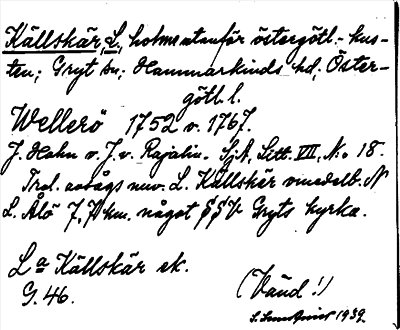 Källskär, L., holme utanför östergötl.-kus-
ten; Gryt sn; Hammarkinds hd; Öster-
götl. l.
Wellerö 1752 o. 1767.
J. Hahn o. J. v. Rajalin. SjA, Litt. VII, No 18.
Trol. avsågs nuv. L. Källskär omedelb. N
L. Ålö 7,7 km. något SSV Gryts kyrka.
La Källskär ek.
G. 46.
(Vänd!)
1939